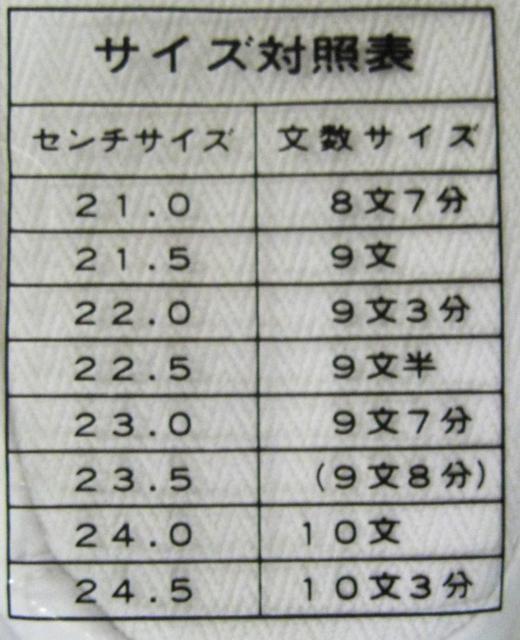 サイズ対照表
センチサイズ 文数サイズ
21.0 8文7分
21.5 9文
22.0 9文3分
22.5 9文半
23.0 9文7分
23.5 (9文8分)
24.0 10文
24.5 10文3分